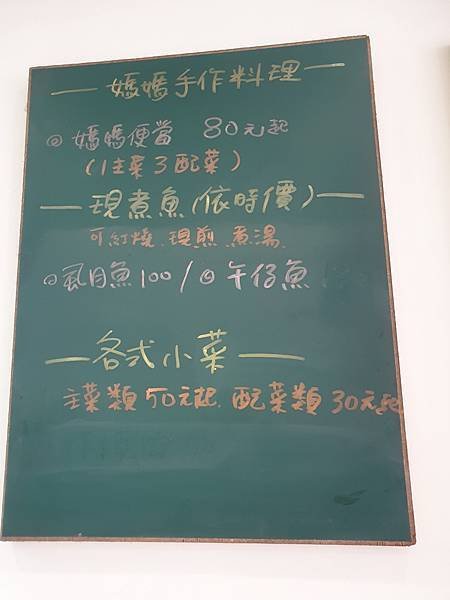 — 媽媽手作料理 —
◎ 媽媽便當 80元起
(1主菜3配菜)
— 現煮魚(依時價) —
可紅燒 現煎 煮湯
◎虱目魚100/◎午仔魚
— 各式小菜 —
主菜類50元起. 配菜類30元起